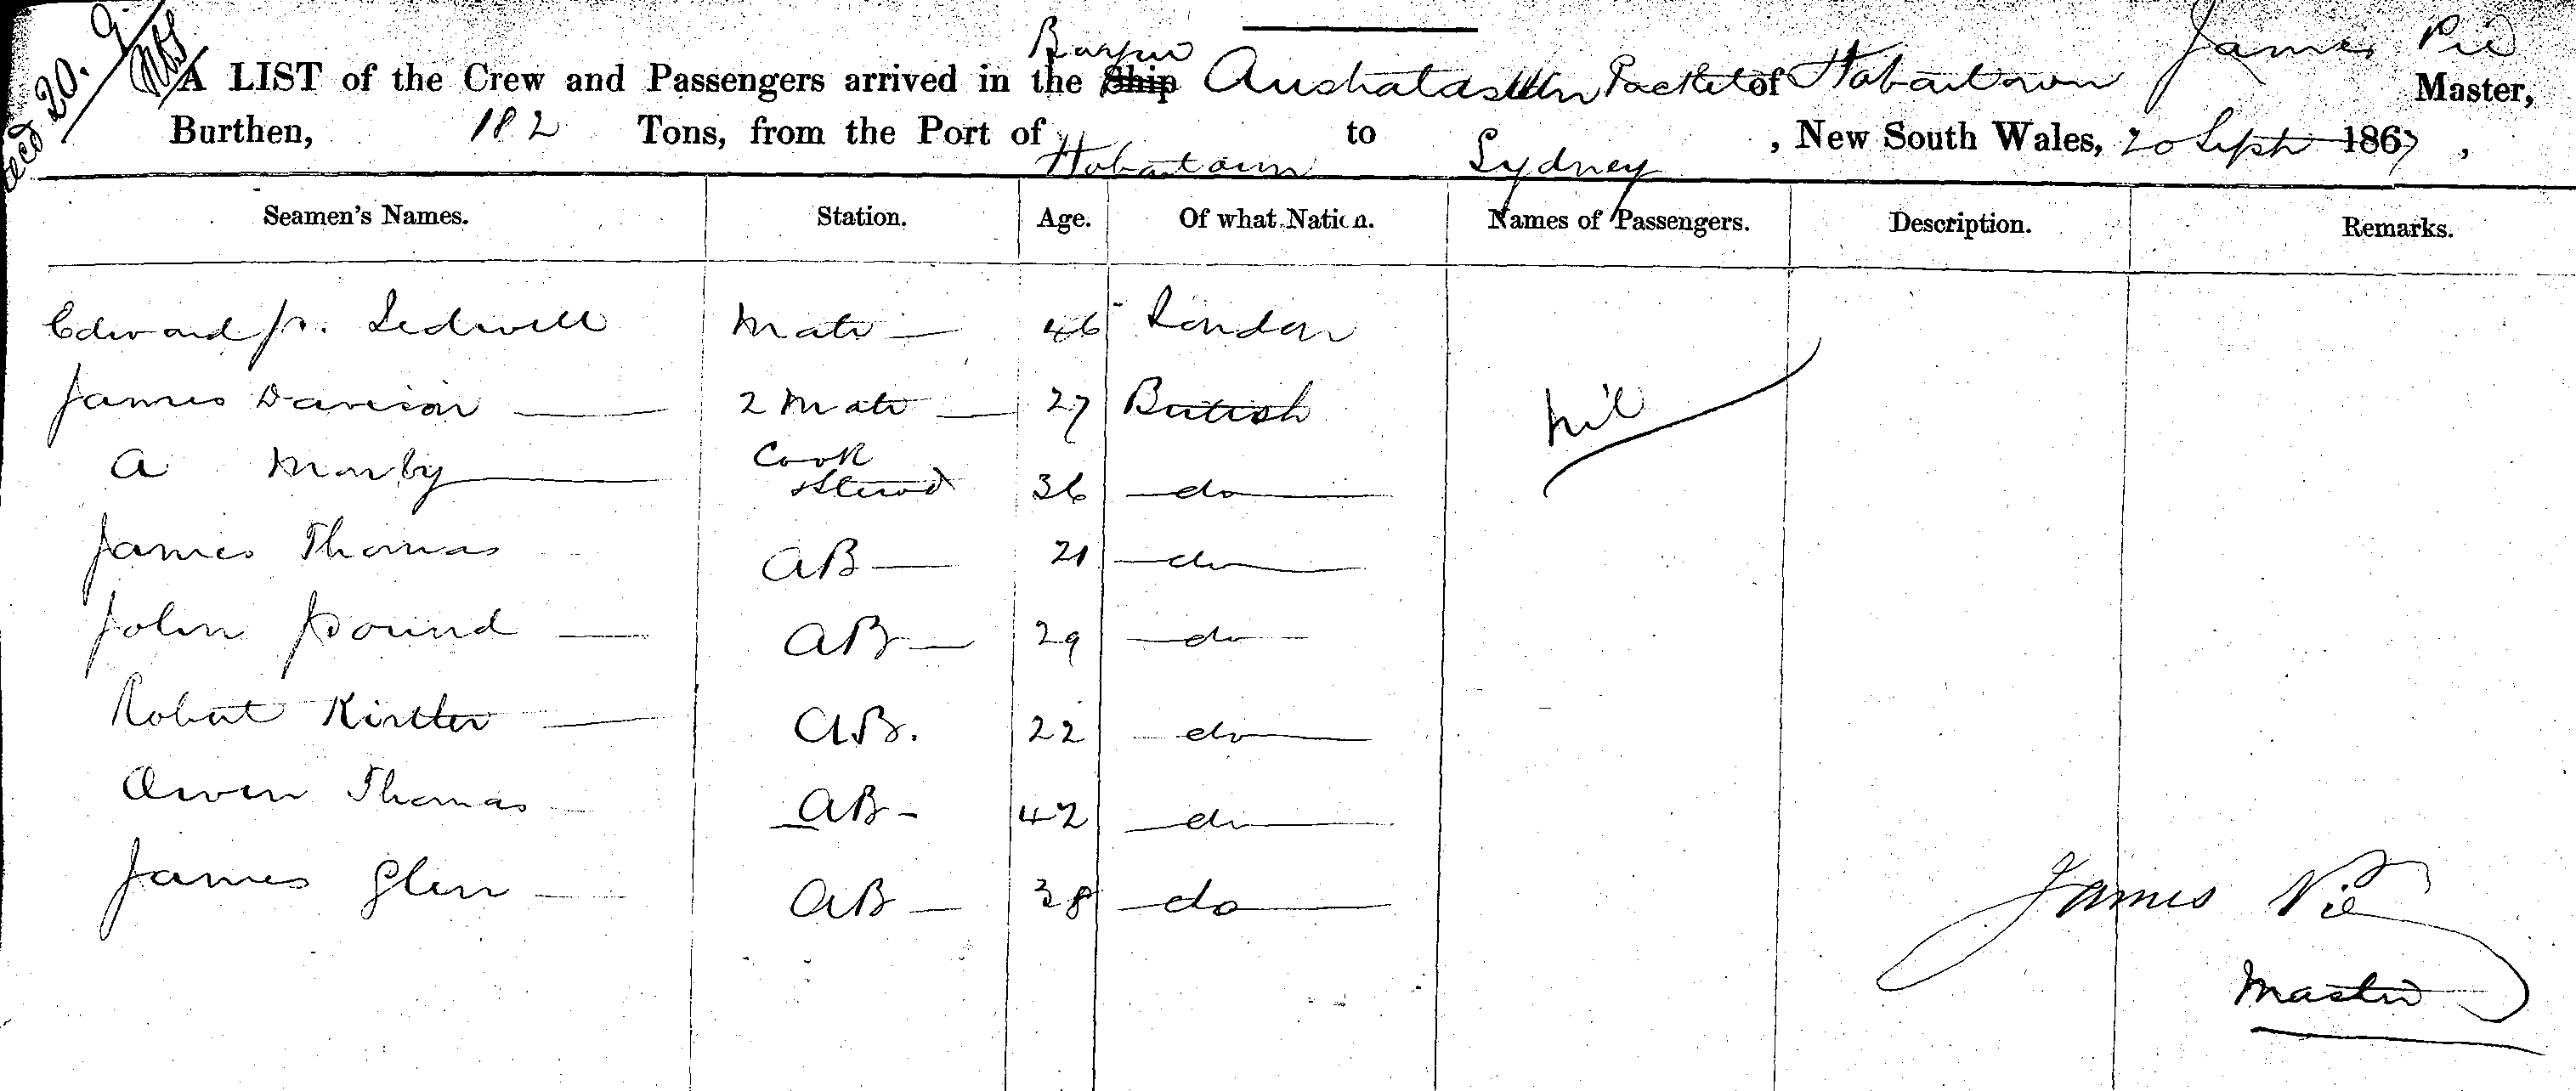 Recd 20. 9.
Barque
James Pie
A LIST of the Crew and Passengers arrived in the Ship Australasian Packet of Hobartown Master,
Burthen, 182 Tons, from the Port of Hobartown to Sydney, New South Wales, 20 Sept 1867,
Seamen's Names. Station. Age. Of what Nation. Names of Passengers. Description. Remarks.
Edward Jr. Sedwell Mate 46 London
James Davison 2 Mate 27 British nil
A Morby Cook & Stewd 36 do
James Thomas AB 21 do
John Pound AB 29 do
Robert AB. 22 do
Owen Thomas AB 42 do
James Glen AB 38 do
James Pie
Master